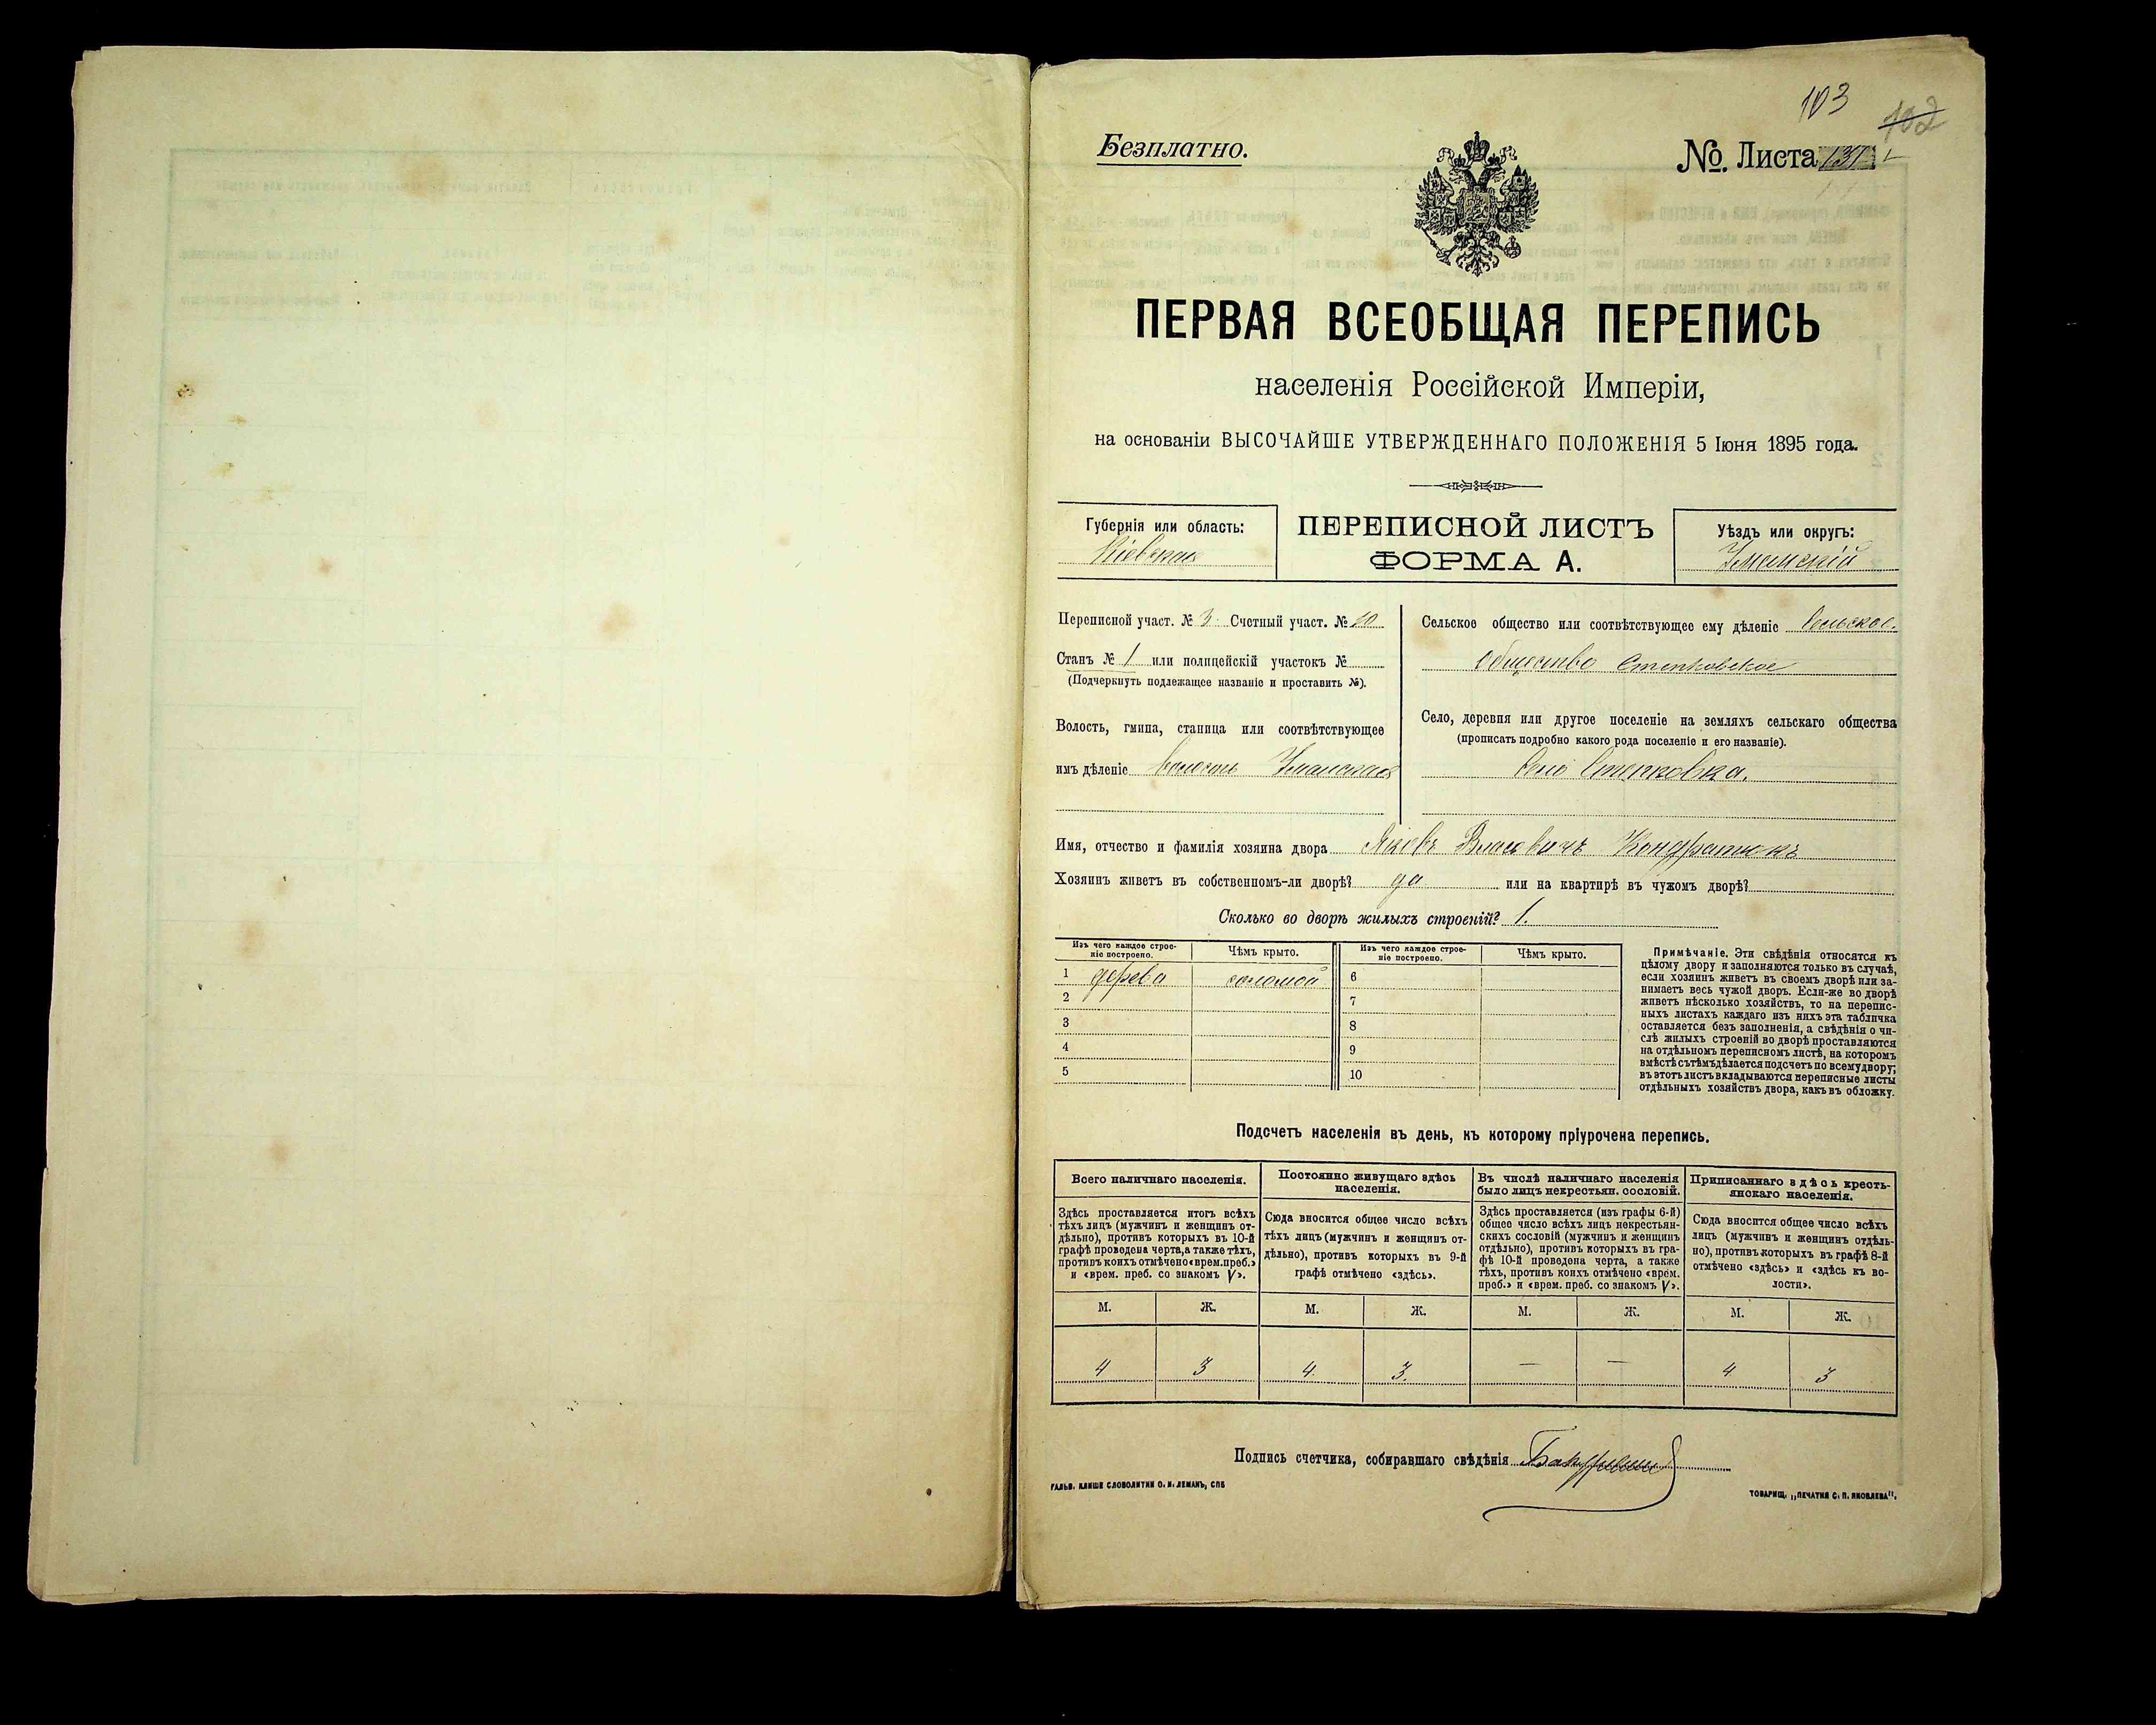 103
102
Безплатно.
№ Листа 131
ПЕРВАЯ ВСЕОБЩАЯ ПЕРЕПИСЬ
населенія Россійской Имперіи,
на основаніи ВЫСОЧАЙШЕ УТВЕРЖДЕННАГО ПОЛОЖЕНІЯ 5 Іюня 1895 года.
Губернія или область:
Кіевская
ПЕРЕПИСНОЙ ЛИСТЪ
ФОРМА А.
Уѣздъ или округъ:
Уманскій
Переписной участ. № 3 Счетный участ. № 20
Станъ № 1 или полицейскій участокъ №
(Подчеркнуть подлежащее названіе и проставить №).
Волость, гмина, станица или соотвѣтствующее
имъ дѣленіе волость Уманская
Сельское общество или соотвѣтствующее ему дѣленіе Сельское
общество Степковское
Село, деревня или другое поселеніе на земляхъ сельскаго общества
(прописать подробно какого рода поселеніе и его названіе).
Село Степковка.
Имя, отчество и фамилія хозяина двора Яковъ Власовичъ Кондратюкъ
Хозяинъ живетъ въ собственномъ-ли дворѣ? да или на квартирѣ въ чужомъ дворѣ?
Сколько во дворѣ жилыхъ строеній? 1.
Изъ чего каждое строе-
ніе построено.
Чѣмъ крыто.
Изъ чего каждое строе-
ніе построено.
Чѣмъ крыто.
1 дерева соломой 6
2 7
3 8
4 9
5 10
Примѣчаніе. Эти свѣдѣнія относятся къ
цѣлому двору и заполняются только въ случаѣ,
если хозяинъ живетъ въ своемъ дворѣ или за-
нимаетъ весь чужой дворъ. Если-же во дворѣ
живетъ нѣсколько хозяйствъ, то на перепис-
ныхъ листахъ каждаго изъ нихъ эта табличка
оставляется безъ заполненія, а свѣдѣнія о чи-
слѣ жилыхъ строеній во дворѣ проставляются
на отдѣльномъ переписномъ листѣ, на которомъ
вмѣстѣ съ тѣмъ дѣлается подсчетъ по всему двору;
въ этотъ листъ вкладываются переписные листы
отдѣльныхъ хозяйствъ двора, какъ въ обложку.
Подсчетъ населенія въ день, къ которому пріурочена перепись.
Всего наличнаго населенія.
Здѣсь проставляется итогъ всѣхъ
тѣхъ лицъ (мужчинъ и женщинъ от-
дѣльно), противъ которыхъ въ 10-й
графѣ проведена черта, а также тѣхъ,
противъ коихъ отмѣчено «врем. преб.»
и «врем. преб. со знакомъ V».
Постоянно живущаго здѣсь
населенія.
Сюда вносится общее число всѣхъ
тѣхъ лицъ (мужчинъ и женщинъ от-
дѣльно), противъ которыхъ въ 9-й
графѣ отмѣчено «здѣсь».
Въ числѣ наличнаго населенія
было лицъ некрестьян. сословій.
Здѣсь проставляется (изъ графы 6-й)
общее число всѣхъ лицъ некрестьян-
скихъ сословій (мужчинъ и женщинъ
отдѣльно), противъ которыхъ въ гра-
фѣ 10-й проведена черта, а также
тѣхъ, противъ коихъ отмѣчено «врем.
преб.» и «врем. преб. со знакомъ V».
Приписаннаго здѣсь кресть-
янскаго населенія.
Сюда вносится общее число всѣхъ
лицъ (мужчинъ и женщинъ отдѣль-
но), противъ которыхъ въ графѣ 8-й
отмѣчено «здѣсь» и «здѣсь къ во-
лости».
М. Ж. М. Ж. М. Ж. М. Ж.
4 3 4. 3. — — 4 3
Подпись счетчика, собиравшаго свѣдѣнія
ГАЛЬВ. КЛИШЕ СЛОВОЛИТНИ О. И. ЛЕМАНЪ, СПБ
ТОВАРИЩ. „ПЕЧАТНЯ С. П. ЯКОВЛЕВА".